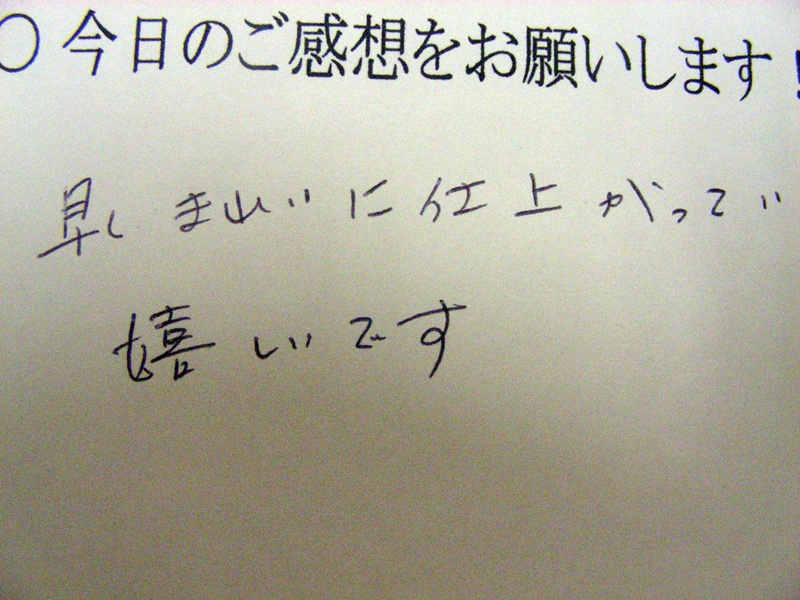 〇 今日のご感想をお願いします!
早く きれいに仕上がってい
嬉しいです